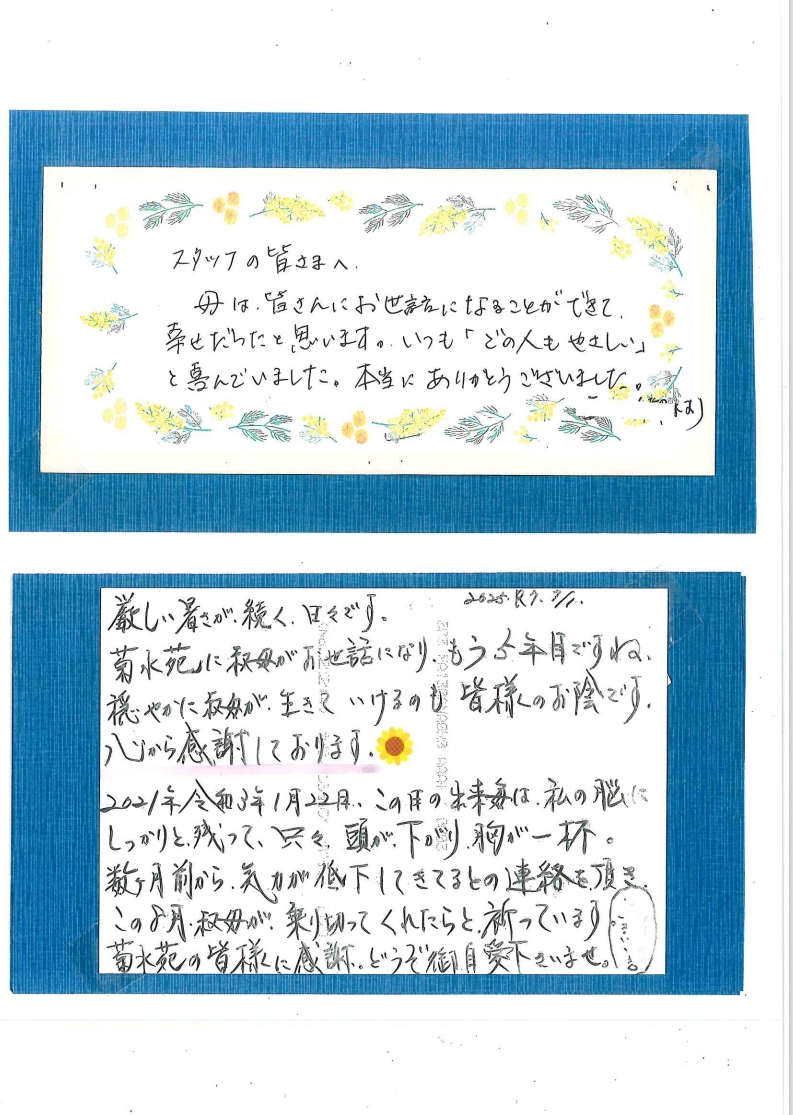 スタッフの皆さまへ.
母は、皆さんにお世話になることができて、
幸せだったと思います。いつも「どの人もやさしい」
と喜んでいました。本当にありがとうございました。
2025. R7. 8/1.
厳しい暑さが、続く、日々です。
菊水苑に叔母がお世話になり、もう5年目ですね、
穏やかに叔母が、生きていけるのも皆様のお陰です。
心から感謝しております。
2021年令和3年1月22日、この日の出来毎は、私の脳に
しっかりと、残って、只々、頭が、下がり、胸が一杯。
数ヶ月前から、気力が低下してきてるとの連絡を頂き、
この8月、叔母が、乗り切ってくれたらと、祈っています。
菊水苑の皆様に感謝。どうぞ御自愛下さいませ。